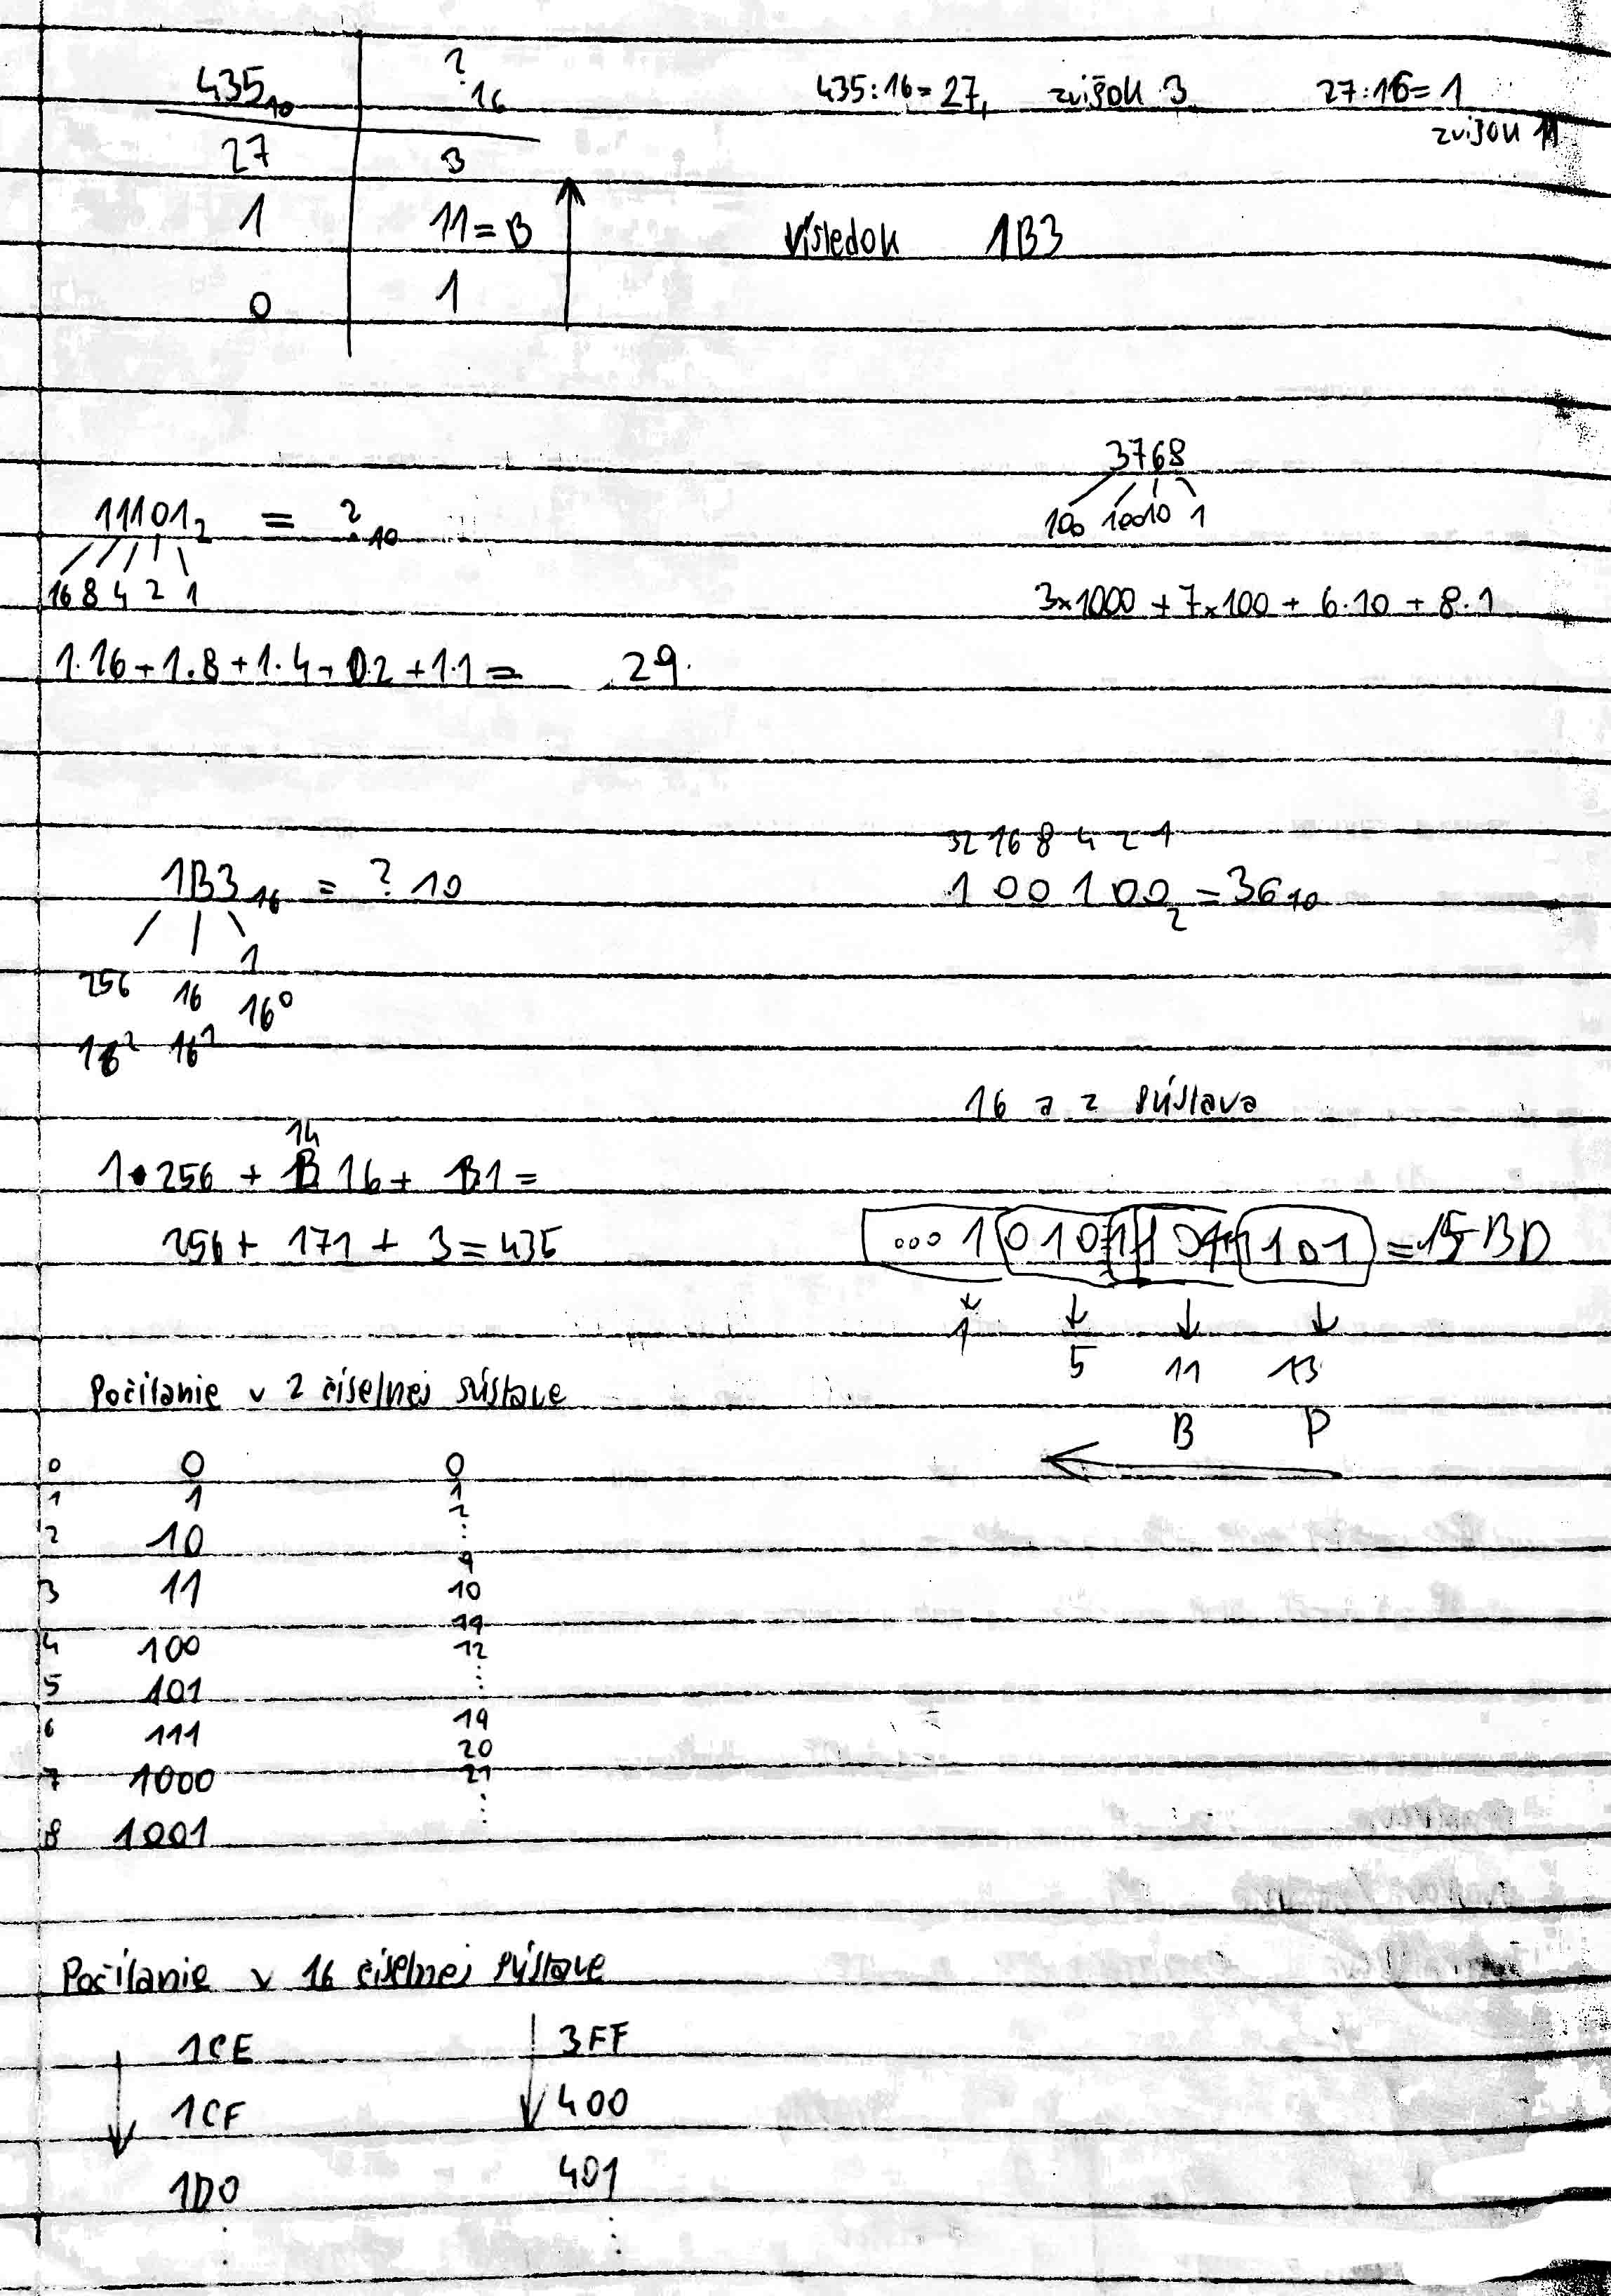 435₁₀ ?₁₆ 435:16=27, zvišok 3 27:16=1
zvišok 11
27 3
1 11=B Výsledok 1B3
0 1
3768
11101₂ = ?₁₀ 100 100 10 1
16 8 4 2 1 3x1000 + 7x100 + 6·10 + 8·1
1·16+1·8+1·4+0·2+1·1= 29
32 16 8 4 2 1
1B3₁₆ = ? 10 100100₂=36₁₀
256 16 1
16² 16¹ 16⁰
16 a 2 sústava
14
1·256 + B 16+ B1=
256+ 171 + 3=435 ...1 0101 1 101 =15BD
1 5 11 13
B D
Počítanie v 2 číselnej sústave
0 0 0
1 1 1
2
2 10 :
9
3 11 10
11
4 100 12
5 101 :
6 111 19
20
7 1000 21
:
8 1001
Počítanie v 16 číselnej sústave
1CE 3FF
1CF 400
1D0 401
: :